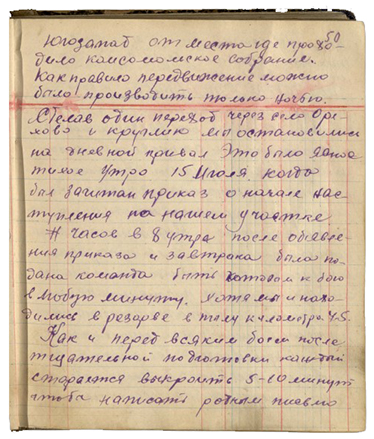 50
югозапад от места где прохо-
дило комсомомское собрание.
Как правило передвижение можно
было производить только ночью.
Сделав один переход через село Оре-
хово и круглию мы остановились
на дневной привал Это было
тихое утро 15 Июля когда
был зачитан приказ о начале нас-
тупления на нашем участке
часов в 8 утра после об'явле-
ния приказа и завтрака была по-
дана команда быть готовом к бою
в любую минуту. хотя мы и нахо-
дились в резерве в тылу километра 4-5.
Как и перед всяким боем после
тщательной подготовки каждый
старается выкроить 5-10 минут
чтобы написать родным письмо